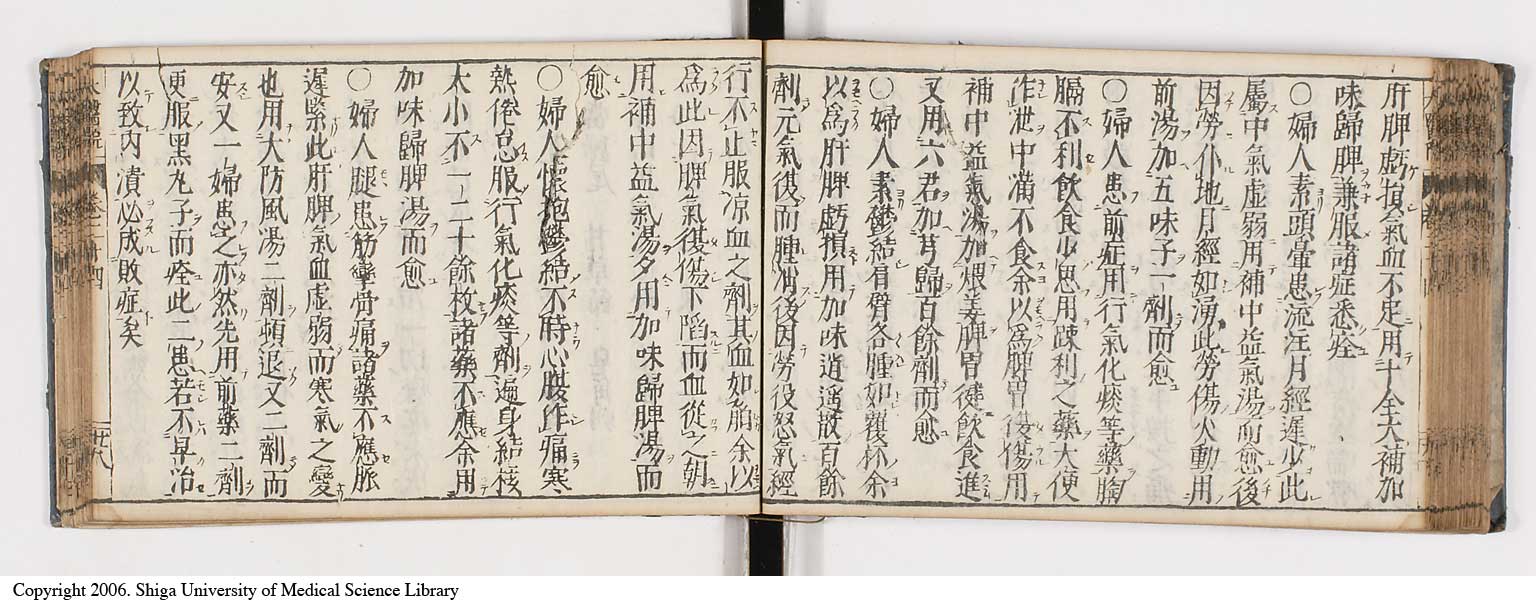 肝脾虧損氣血不足用十全大補加
味歸脾兼服諸症悉痊
〇婦人素頭暈患流注月經遲少此
屬中氣虛弱用補中益氣湯而愈後
因勞仆地月經如湧此勞傷火動用
前湯加五味子一劑而愈
〇婦人患前症用行氣化痰等藥胸
膈不利飲食少思用疎利之藥大便
作泄中滿不食余以爲脾胃復傷用
補中益氣湯加煨姜脾胃健飲食進
又用六君加芎歸百餘劑而愈
〇婦人素鬱結肩臂各腫如覆杯余
以爲肝脾虧損用加味逍遥散百餘
劑元氣復而腫消後因勞役怒氣經
行不止服凉血之劑其血如崩余以
爲此因脾氣復傷下陷而血從之朝
用補中益氣湯夕用加味歸脾湯而
愈
〇婦人懷抱鬱結不時心腹作痛寒
熱倦怠服行氣化痰等劑遍身結核
大小不一二十餘枚諸藥不應余用
加味歸脾湯而愈
〇婦人腿患筋攣骨痛諸藥不應脈
遲緊此肝脾氣血虛弱而寒氣之變
也用大防風湯二劑頓退又二劑而
安又一婦患之亦然先用前藥二劑
更服黑丸子而痊此二患若不早治
以致内潰必成敗症矣
廿八
Copyright 2006. Shiga University of Medical Science Library